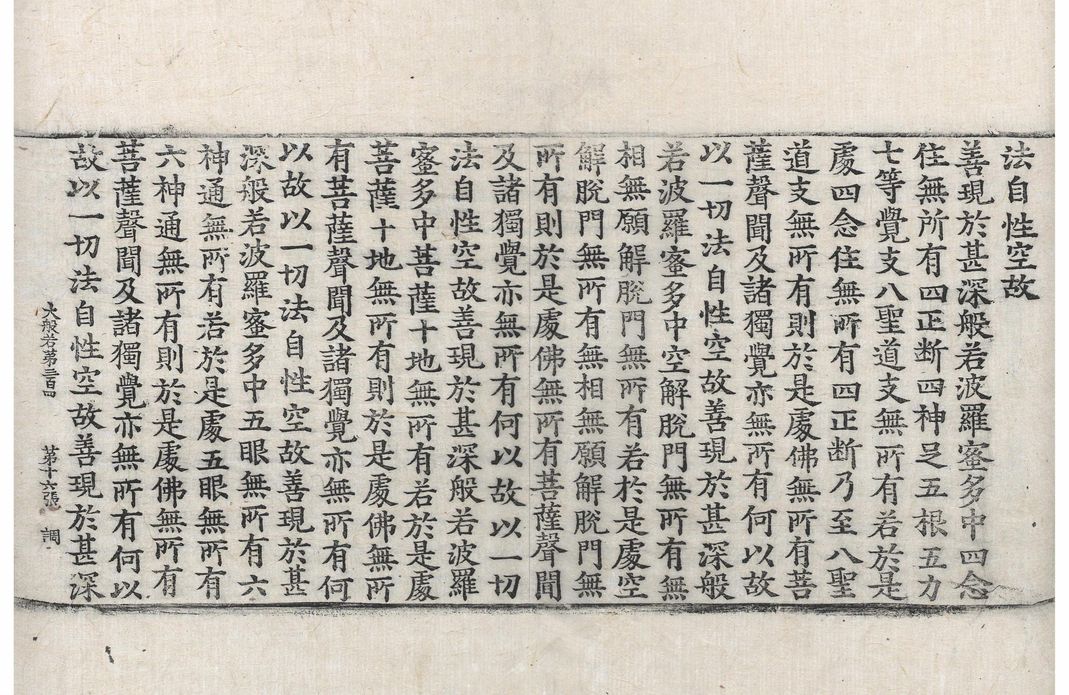 法自性空故
善現於甚深般若波羅蜜多中四念
住無所有四正断四神足五根五力
七等覺支八聖道支無所有若於是
處四念住無所有四正断乃至八聖
道支無所有則於是處佛無所有菩
薩聲聞及諸獨覺亦無所有何以故
以一切法自性空故善現於甚深般
若波羅蜜多中空解脫門無所有無
相無願解脫門無所有若於是處空
解脫門無所有無相無願解脫門無
所有則於是處佛無所有菩薩聲聞
及諸獨覺亦無所有何以故以一切
法自性空故善現於甚深般若波羅
蜜多中菩薩十地無所有若於是處
菩薩十地無所有則於是處佛無所
有菩薩聲聞及諸獨覺亦無所有何
以故以一切法自性空故善現於甚
深般若波羅蜜多中五眼無所有六
神通無所有若於是處五眼無所有
六神通無所有則於是處佛無所有
菩薩聲聞及諸獨覺亦無所有何以
故以一切法自性空故善現於甚深
大般若第三百四 第十六張 調